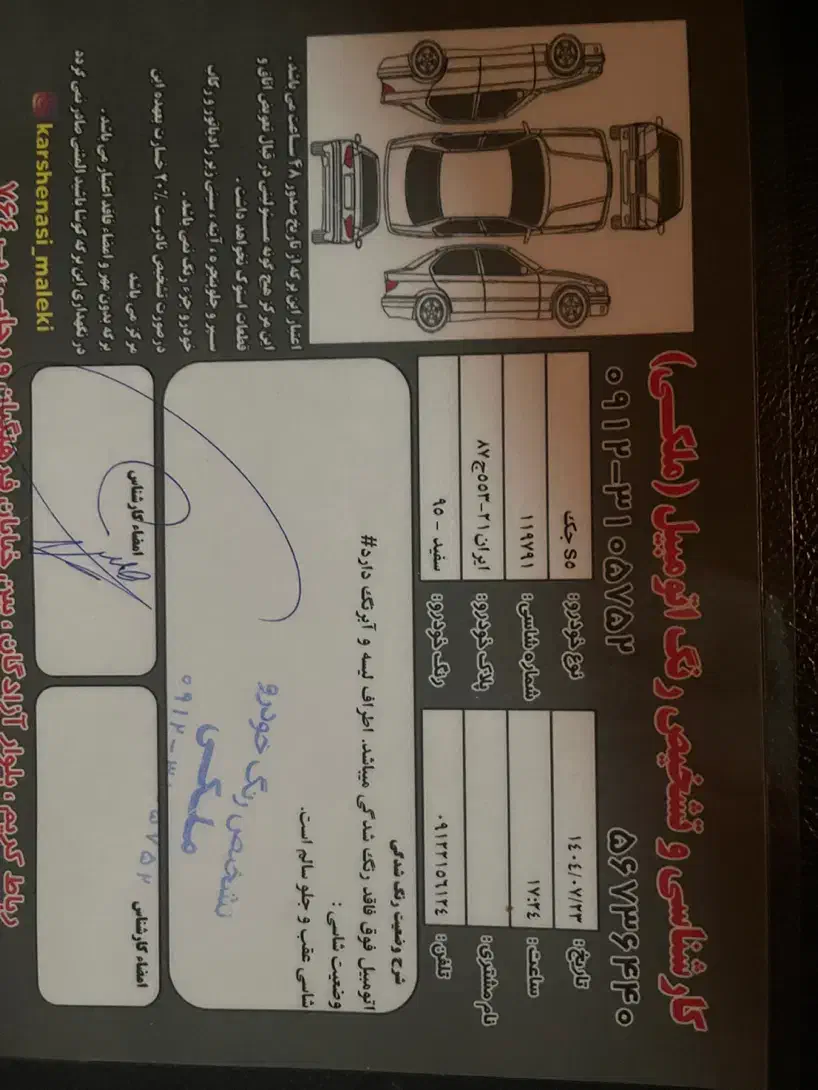 کارشناسی و تشخیص رنگ اتومبیل (ملکی)
۰۹۱۲-۳۱۰۵۷۵۲
۵۶۷۳۶۴۴۰
نوع خودرو: S5 جک
شماره شاسی: ۱۱۹۷۹۱
پلاک خودرو: ایران ۲۱-۵۵۳ج۸۷
رنگ خودرو: سفید - ۹۵
تاریخ: ۱۴۰۴/۰۷/۲۳
ساعت: ۱۷:۲۴
نام مشتری:
تلفن: ۰۹۱۲۲۱۵۶۱۲۴
شرح وضعیت رنگ شدگی
اتومبیل فوق فاقد رنگ شدگی میباشد. اطراف لیسه و آبرنگ دارد#
وضعیت شاسی:
شاسی عقب و جلو سالم است.
تشخیص رنگ خودرو
ملکی
۰۹۱۲-۳۱
۵۷۵۲
امضاء کارشناس
امضاء کارشناس
اعتبار این برگه از تاریخ صدور ۴۸ ساعت می باشد.
این مرکز هیچ گونه مسئولیتی در قبال تعویض اتاق و
قطعات استوک نخواهد داشت.
سپر و جلوپنجره، آینه، سینی زیر رادیاتور و رکاب
خودرو جزء رنگ نمی باشد.
درصورت تشخیص نادرست ۲۰٪ خسارت بعهده این
مرکز می باشد
برگه بدون مهر و امضاء فاقد اعتبار می باشد.
در نگهداری این برگه کوشا باشید المثنی صادر نمی گردد
karshenasi_maleki
رباط کریم، بلوار آزادگان، بین خیابان فرهنگیان و